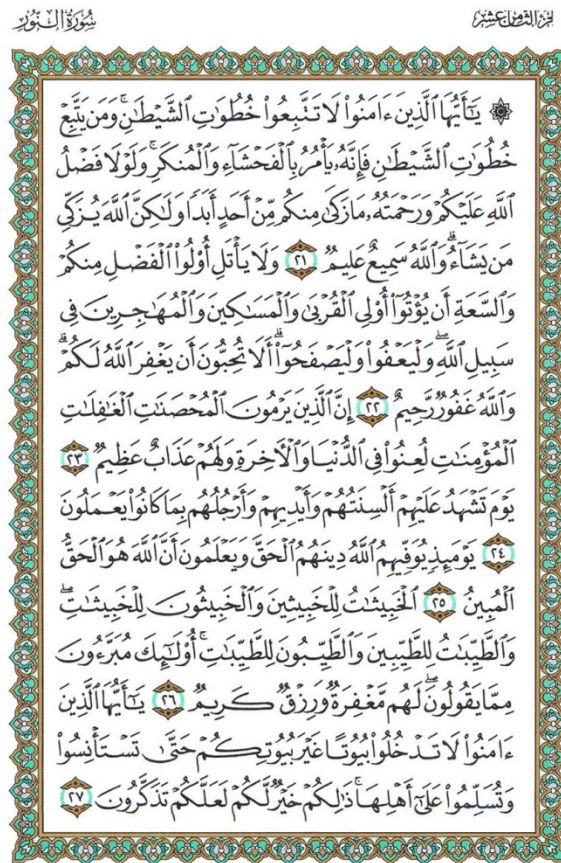 سُورَةُ النُّورِ
الجزء الثامن عشر
۞ يَٰٓأَيُّهَا ٱلَّذِينَ ءَامَنُواْ لَا تَتَّبِعُواْ خُطُوَٰتِ ٱلشَّيْطَٰنِۚ وَمَن يَتَّبِعْ
خُطُوَٰتِ ٱلشَّيْطَٰنِ فَإِنَّهُۥ يَأْمُرُ بِٱلْفَحْشَآءِ وَٱلْمُنكَرِۚ وَلَوْلَا فَضْلُ
ٱللَّهِ عَلَيْكُمْ وَرَحْمَتُهُۥ مَا زَكَىٰ مِنكُم مِّنْ أَحَدٍ أَبَدًا وَلَٰكِنَّ ٱللَّهَ يُزَكِّى
مَن يَشَآءُۗ وَٱللَّهُ سَمِيعٌ عَلِيمٌ ٢١ وَلَا يَأْتَلِ أُوْلُواْ ٱلْفَضْلِ مِنكُمْ
وَٱلسَّعَةِ أَن يُؤْتُوٓاْ أُوْلِى ٱلْقُرْبَىٰ وَٱلْمَسَٰكِينَ وَٱلْمُهَٰجِرِينَ فِى
سَبِيلِ ٱللَّهِۖ وَلْيَعْفُواْ وَلْيَصْفَحُوٓاْۗ أَلَا تُحِبُّونَ أَن يَغْفِرَ ٱللَّهُ لَكُمْۗ
وَٱللَّهُ غَفُورٌ رَّحِيمٌ ٢٢ إِنَّ ٱلَّذِينَ يَرْمُونَ ٱلْمُحْصَنَٰتِ ٱلْغَٰفِلَٰتِ
ٱلْمُؤْمِنَٰتِ لُعِنُواْ فِى ٱلدُّنْيَا وَٱلْءَاخِرَةِ وَلَهُمْ عَذَابٌ عَظِيمٌ ٢٣
يَوْمَ تَشْهَدُ عَلَيْهِمْ أَلْسِنَتُهُمْ وَأَيْدِيهِمْ وَأَرْجُلُهُم بِمَا كَانُواْ يَعْمَلُونَ
٢٤ يَوْمَئِذٍ يُوَفِّيهِمُ ٱللَّهُ دِينَهُمُ ٱلْحَقَّ وَيَعْلَمُونَ أَنَّ ٱللَّهَ هُوَ ٱلْحَقُّ
ٱلْمُبِينُ ٢٥ ٱلْخَبِيثَٰتُ لِلْخَبِيثِينَ وَٱلْخَبِيثُونَ لِلْخَبِيثَٰتِۖ
وَٱلطَّيِّبَٰتُ لِلطَّيِّبِينَ وَٱلطَّيِّبُونَ لِلطَّيِّبَٰتِۚ أُوْلَٰٓئِكَ مُبَرَّءُونَ
مِمَّا يَقُولُونَۖ لَهُم مَّغْفِرَةٌ وَرِزْقٌ كَرِيمٌ ٢٦ يَٰٓأَيُّهَا ٱلَّذِينَ
ءَامَنُواْ لَا تَدْخُلُواْ بُيُوتًا غَيْرَ بُيُوتِكُمْ حَتَّىٰ تَسْتَأْنِسُواْ
وَتُسَلِّمُواْ عَلَىٰٓ أَهْلِهَاۚ ذَٰلِكُمْ خَيْرٌ لَّكُمْ لَعَلَّكُمْ تَذَكَّرُونَ ٢٧